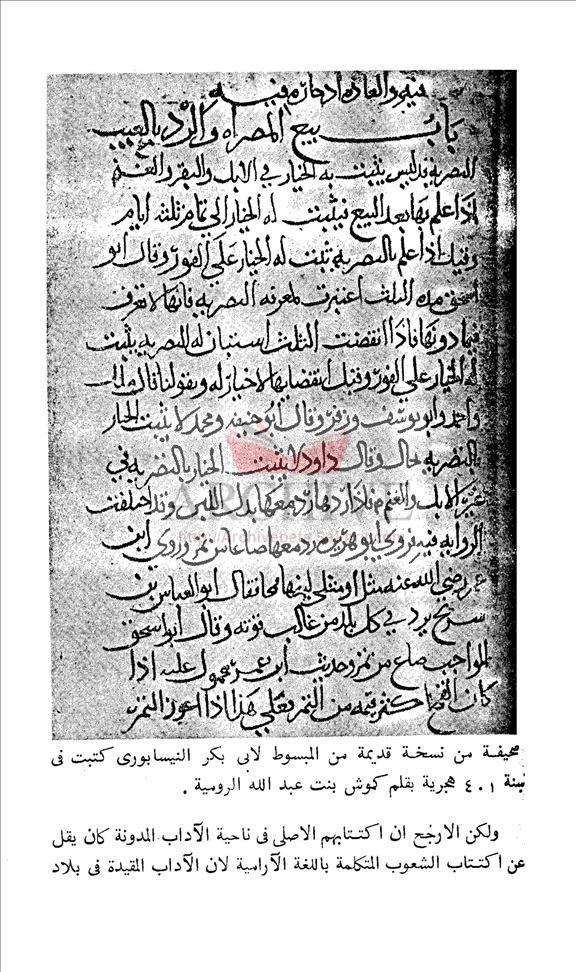 فيه والعاده اذ جازه فيه
باب بيع المصراه والرد بالعيب
التصريه تدليس يثبت به الخيار في الابل والبقر والغنم
اذا علم بها بعد البيع فيثبت له الخيار الى تمام ثلثه ايام
وقيل اذا علم بالتصريه ثبت له الخيار على الفور وقال ابو
اسحق مده الثلث اعتبرت لمعرفه التصريه فانها لا تعرف
فيما دونها فاذا انقضت الثلث استبان له التصريه يثبت
له الخيار على الفور وقبل انقضايها لا خيار له وبقولنا قال
واحمد وابو يوسف وزفر وقال ابو حنيفه ومحمد لا يثبت الخيار
بالتصريه بحال وقال داود لا يثبت الخيار بالتصريه في
غير الابل والغنم فاذا ردها رد معها بدل اللبن وقد اختلفت
الروايه فيه فروى ابو هريره رد معها صاعا من تمر وروى ابن
عمر رضي الله عنه مثل او مثلي لبنها قمحا فقال ابو العباس بن
سريج يرد في كل بلد من غالب قوته وقال ابو اسحق
الواجب صاع من تمر وحديث ابن عمر محمول عليه اذا
كان القمح اكثر قيمه من التمر فعلى هذا اذا اعوز التمر
صحيفة من نسخة قديمة من المبسوط لابى بكر النيسابورى كتبت فى
سنة ٤٠١ هجرية بقلم كموش بنت عبد الله الرومية .
ولكن الارجح ان اكتتابهم الاصلى فى ناحية الآداب المدونة كان يقل
عن اكتتاب الشعوب المتكلمة باللغة الآرامية لان الآداب المقيدة فى بلاد
ARCHIVE